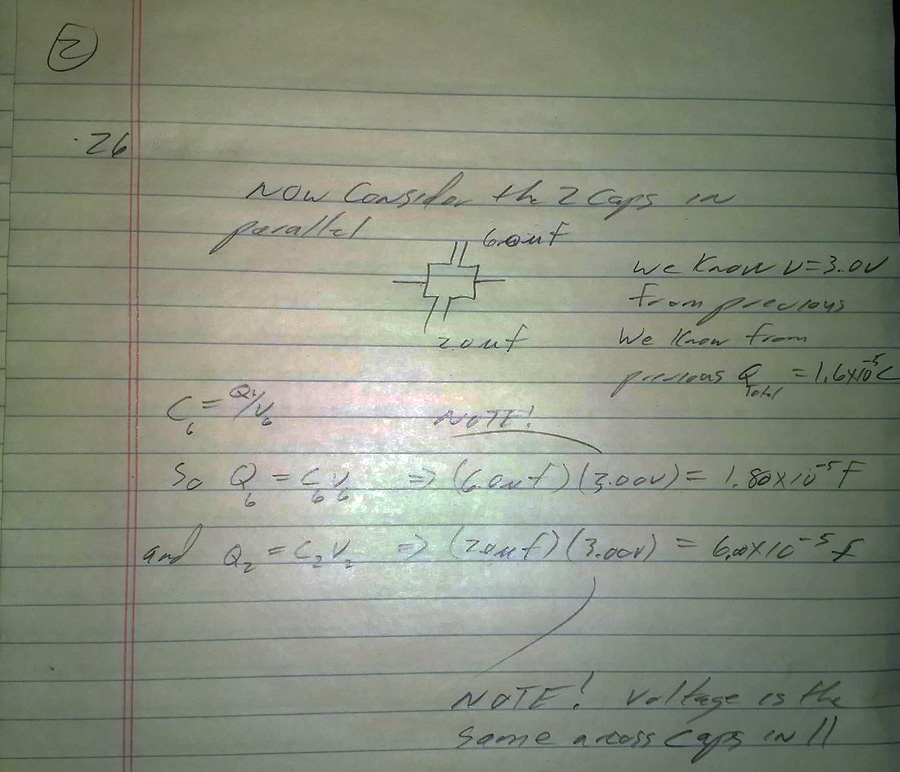 2
.26
Now Consider the 2 Caps in
parallel
6.0uf
2.0uf
we know V=3.0V
from previous
we know from
previous Q Total = 1.6x10^-5 C
C6 = Q6/V6
NOTE!
So Q6 = C6V6 => (6.0uf)(3.00V) = 1.80x10^-5 F
and Q2 = C2V2 => (2.0uf)(3.00V) = 6.00x10^-5 f
NOTE! Voltage is the
same across Caps in ||